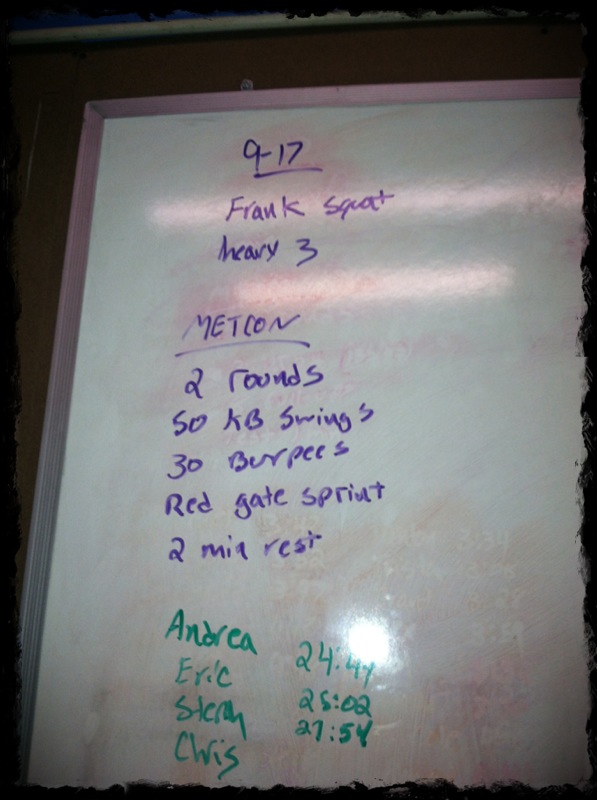 9-17
Frank Squat
heavy 3
METCON
2 rounds
50 KB Swings
30 Burpees
Red gate sprint
2 min rest
Andrea
Eric 24:44
25:02
Chris 27:54